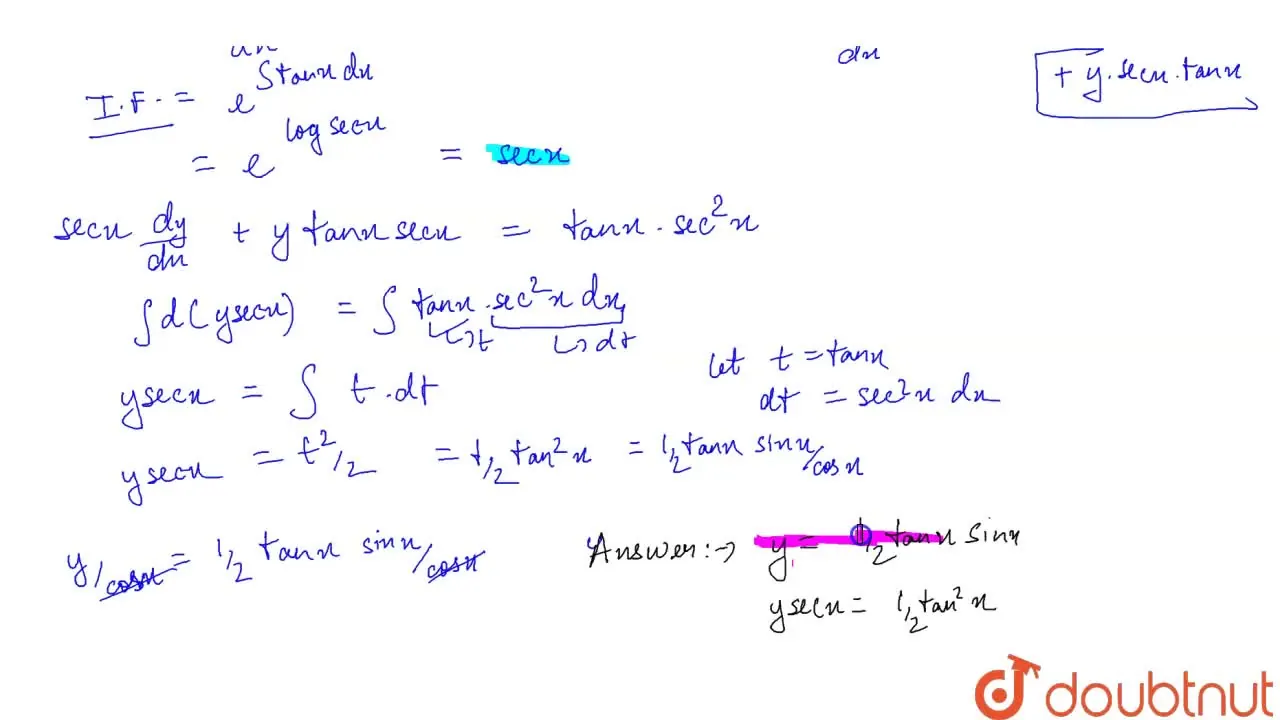 dx
+ y. secx. tanx
I.F. = e^∫tanx dx
= e^log secx = secx
secx dy/dx + y tanx secx = tanx. sec²x
∫d(ysecx) = ∫ tanx. sec²x dx
↳t ↳dt
let t = tanx
ysecx = ∫ t.dt
dt = sec²x dx
ysecx = t²/2 = 1/2 tan²x = 1/2 tanx sinx/cosx
y/cosx = 1/2 tanx sinx/cosx
Answer:→ y = 1/2 tanx sinx
ysecx = 1/2 tan²x
doubtnut